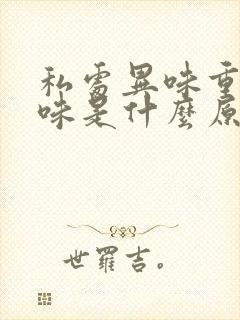 私處異味重
味是什麼原
世羅吉。